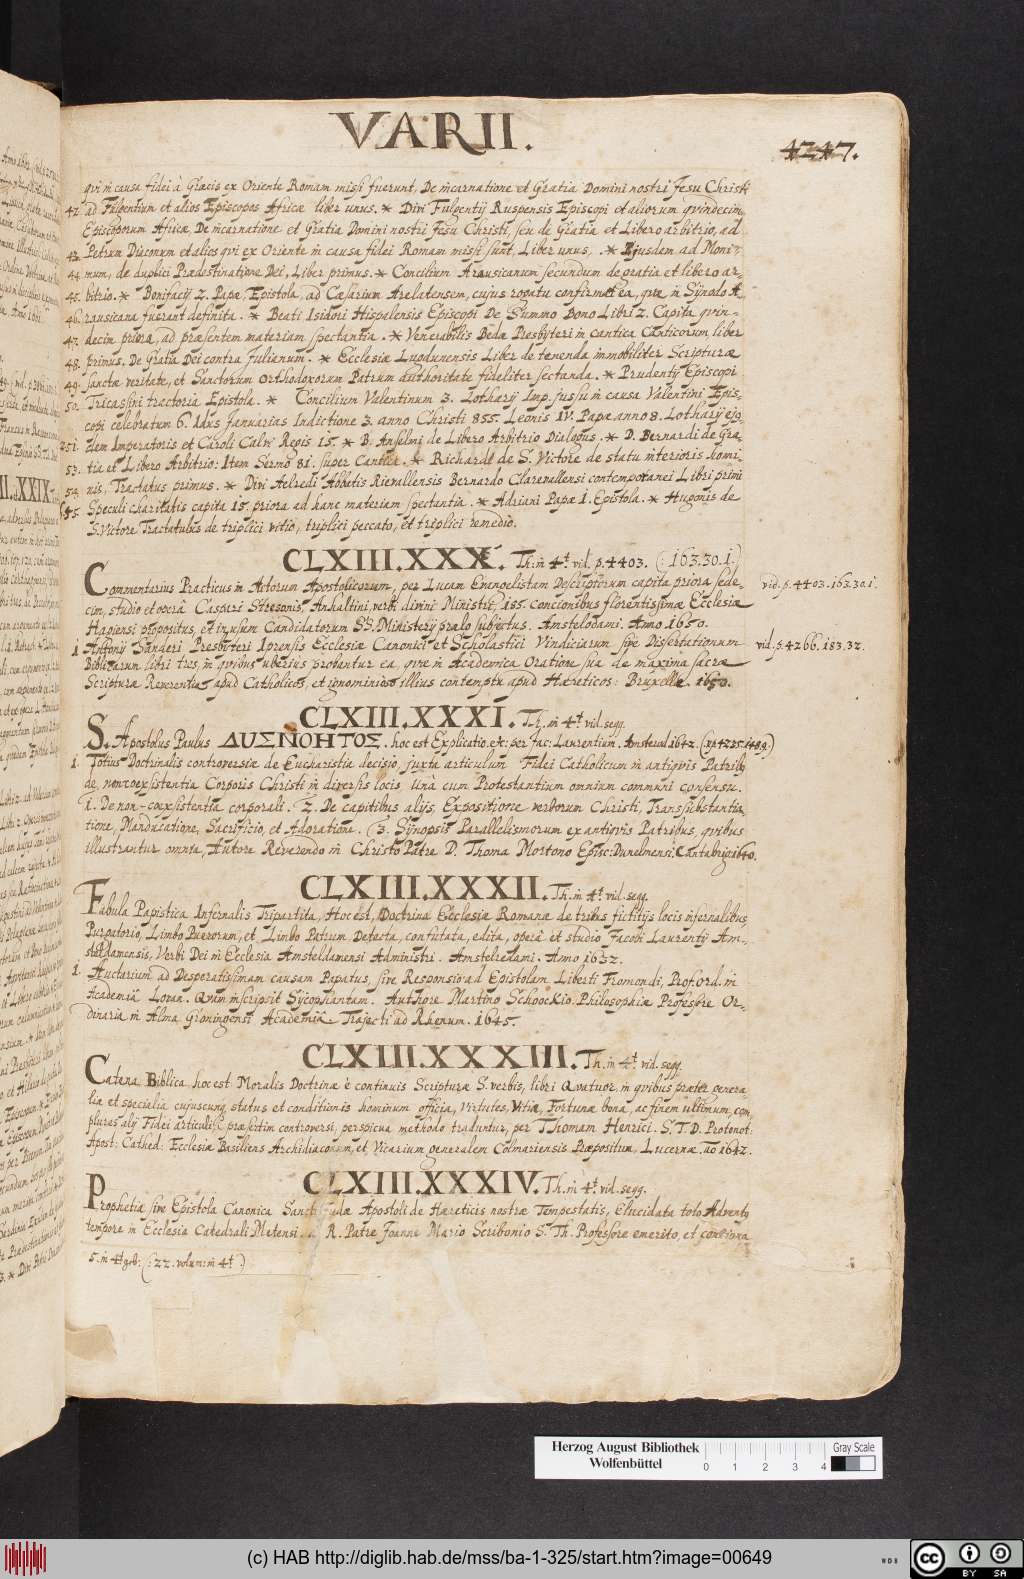 VARII.
4247.
qvi in causa fidei à Græcis ex Oriente Romam missi fuerunt, De incarnatione et Gratia Domini nostri Jesu Christi
42. ad Fulgentium et alios Episcopos Africæ liber unus. * Divi Fulgentij Ruspensis Episcopi et aliorum qvindecim
Episcoporum Africæ, De incarnatione et Gratia Domini nostri Jesu Christi, seu de Gratia et Libero arbitrio, ad
43. Petrum Diaconum et alios qvi ex Oriente in causa fidei Romam missi sunt, Liber unus. * Ejusdem ad Moni-
44. mum, de duplici Prædestinatione Dei, Liber primus. * Concilium Arausicanum secundum de gratia et libero ar-
45. bitrio. * Bonifacij 2. Papæ, Epistola, ad Cæsarium Arelatensem, cujus rogatu confirmat ea, qvæ in Synodo A-
46. rausicana fuerant definita. * Beati Isidori Hispalensis Episcopi De Summo Bono Libri 2. Capita qvin-
47. decim priora, ad præsentem materiam spectantia. * Venerabilis Bedæ Presbyteri in cantica Canticorum liber
48. primus. De Gratia Dei contra Julianum. * Ecclesiæ Lugdunensis Liber de tenenda immobiliter Scripturæ
49. sanctæ veritate, et Sanctorum Orthodoxorum Patrum authoritate fideliter sectanda. * Prudentij Episcopi
50. Tricassini tractoria Epistola. * Concilium Valentinum 3. Lotharij Imp. jussu in causa Valentini Epis-
copi celebratum 6. Idus Januarias Indictione 3. anno Christi 855. Leonis IV. Papæ anno 8. Lotharij ejus-
351. dem Imperatoris et Caroli Calvi Regis 15. * B. Anselmi de Libero Arbitrio Dialogus. * D. Bernardi de Gra-
53. tia et Libero Arbitrio: Item Sermo 81. super Cantica. * Richardi de S. Victore de statu interioris homi-
54. nis, Tractatus primus. * Divi Aelredi Abbatis Rievallensis Bernardo Clarevallensi contemporanei Libri primi
55. Speculi charitatis capita 15. priora ad hanc materiam spectantia. * Adriani Papæ I. Epistola. * Hugonis de
S. Victore Tractatulus de triplici vitio, triplici peccato, et triplici remedio.
CLXIII.XXX. Th: in 4t vid. p. 4403. (: 163.30.1.)
Commentarius Practicus in Actorum Apostolicorum, per Lucam Evangelistam Descriptorum capita priora sede-
vid. p. 4403. 163.30.1.
cim, studio et operâ Caspari Stresonis, Anhaltini, verbi divini Ministri, 155. concionibus florentissimæ Ecclesiæ
Hagiensi propositus, et in usum Candidatorum SS. Ministerij prælo subjectus. Amstelodami. Anno 1650.
1 Antonij Sanderi Presbyteri Iprensis Ecclesiæ Canonici et Scholastici Vindiciarum sive Dissertationum
vid. p. 4266. 183.32.
Biblicarum libri tres, in qvibus uberius probantur ea, qvæ in Academica Oratione sua de maxima sacræ
Scripturæ Reverentia apud Catholicos, et ignominioso illius contemptu apud Hæreticos: Bruxellæ. 1650.
CLXIII.XXXI. Th. in 4t vid. segg.
S. Apostolus Paulus ΔΥΣΝΟΗΤΟΣ. hoc est Explicatio. etc: per Jac: Laurentium. Amstelod 1642.
1. Totius Doctrinalis controversiæ de Eucharistia decisio, juxta articulum Fidei Catholicum in antiqvis Patribus
de, non-coexistentia Corporis Christi in diversis locis, Unà cum Protestantium omnium communi consensu.
1. De non-coexistentia corporali. 2. De capitibus alijs, Expositione verborum Christi, Transsubstantia-
tione, Manducatione, Sacrificio, et Adoratione. 3. Synopsis Parallelismorum ex antiqvis Patribus, qvibus
illustrantur omnia, Autore Reverendo in Christo Patre D. Thoma Mortono Episc: Dunelmensi. Cantabrig 1640.
CLXIII.XXXII. Th. in 4t vid. segg.
Fabula Papistica Infernalis Tripartita, Hoc est, Doctrina Ecclesiæ Romanæ de tribus fictitijs locis infernalibus
Purgatorio, Limbo Puerorum, et Limbo Patrum Detecta, confutata, edita, operâ et studio Jacobi Laurentij Am-
steldamensis, Verbi Dei in Ecclesia Amsteldamensi Administri. Amstelredami. Anno 1632.
1. Auctarium ad Desperatissimam causam Papatus sive Responsio ad Epistolam Liberti Fromondi, Prof. Ord. in
Academiâ Lovan. Qvam inscripsit Sycophantam. Authore Martino Schoockio Philosophiæ Professore Or-
dinario in Alma Groningensi Academiâ. Trajecti ad Rhenum. 1645.
CLXIII.XXXIII. Th. in 4t vid. segg.
Catena Biblica, hoc est Moralis Doctrinæ è continuis Scripturæ S. verbis, libri Qvatuor, in qvibus præter genera-
lia et specialia cujuscunq status et conditionis hominum officia, Virtutes, Vitia, Fortunæ bona, ac finem ultimum, com-
plures alij Fidei articuli, præsertim controversi, perspicua methodo traduntur, per Thomam Henrici. S. T. D. Protonot:
Apost: Cathed. Ecclesiæ Basiliens Archidiaconum, et Vicarium generalem Colmariensis Præpositum, Lucernæ. Ao 1642.
CLXIII.XXXIV. Th. in 4t vid. segg.
Prophetia sive Epistola Canonica Sancti Judæ Apostoli de Hæreticis nostræ Tempestatis, Elucidata toto Adventu
tempore in Ecclesia Catedrali Metensi R. Patre Joanne Mario Scribonio S. Th. Professore emerito, et conciona
5. in 4t geb: (: 22. volum: in 4t)
Herzog August Bibliothek
Wolfenbüttel
0 1 2 3 4
Gray Scale
(c) HAB http://diglib.hab.de/mss/ba-1-325/start.htm?image=00649
WDB
CC BY SA